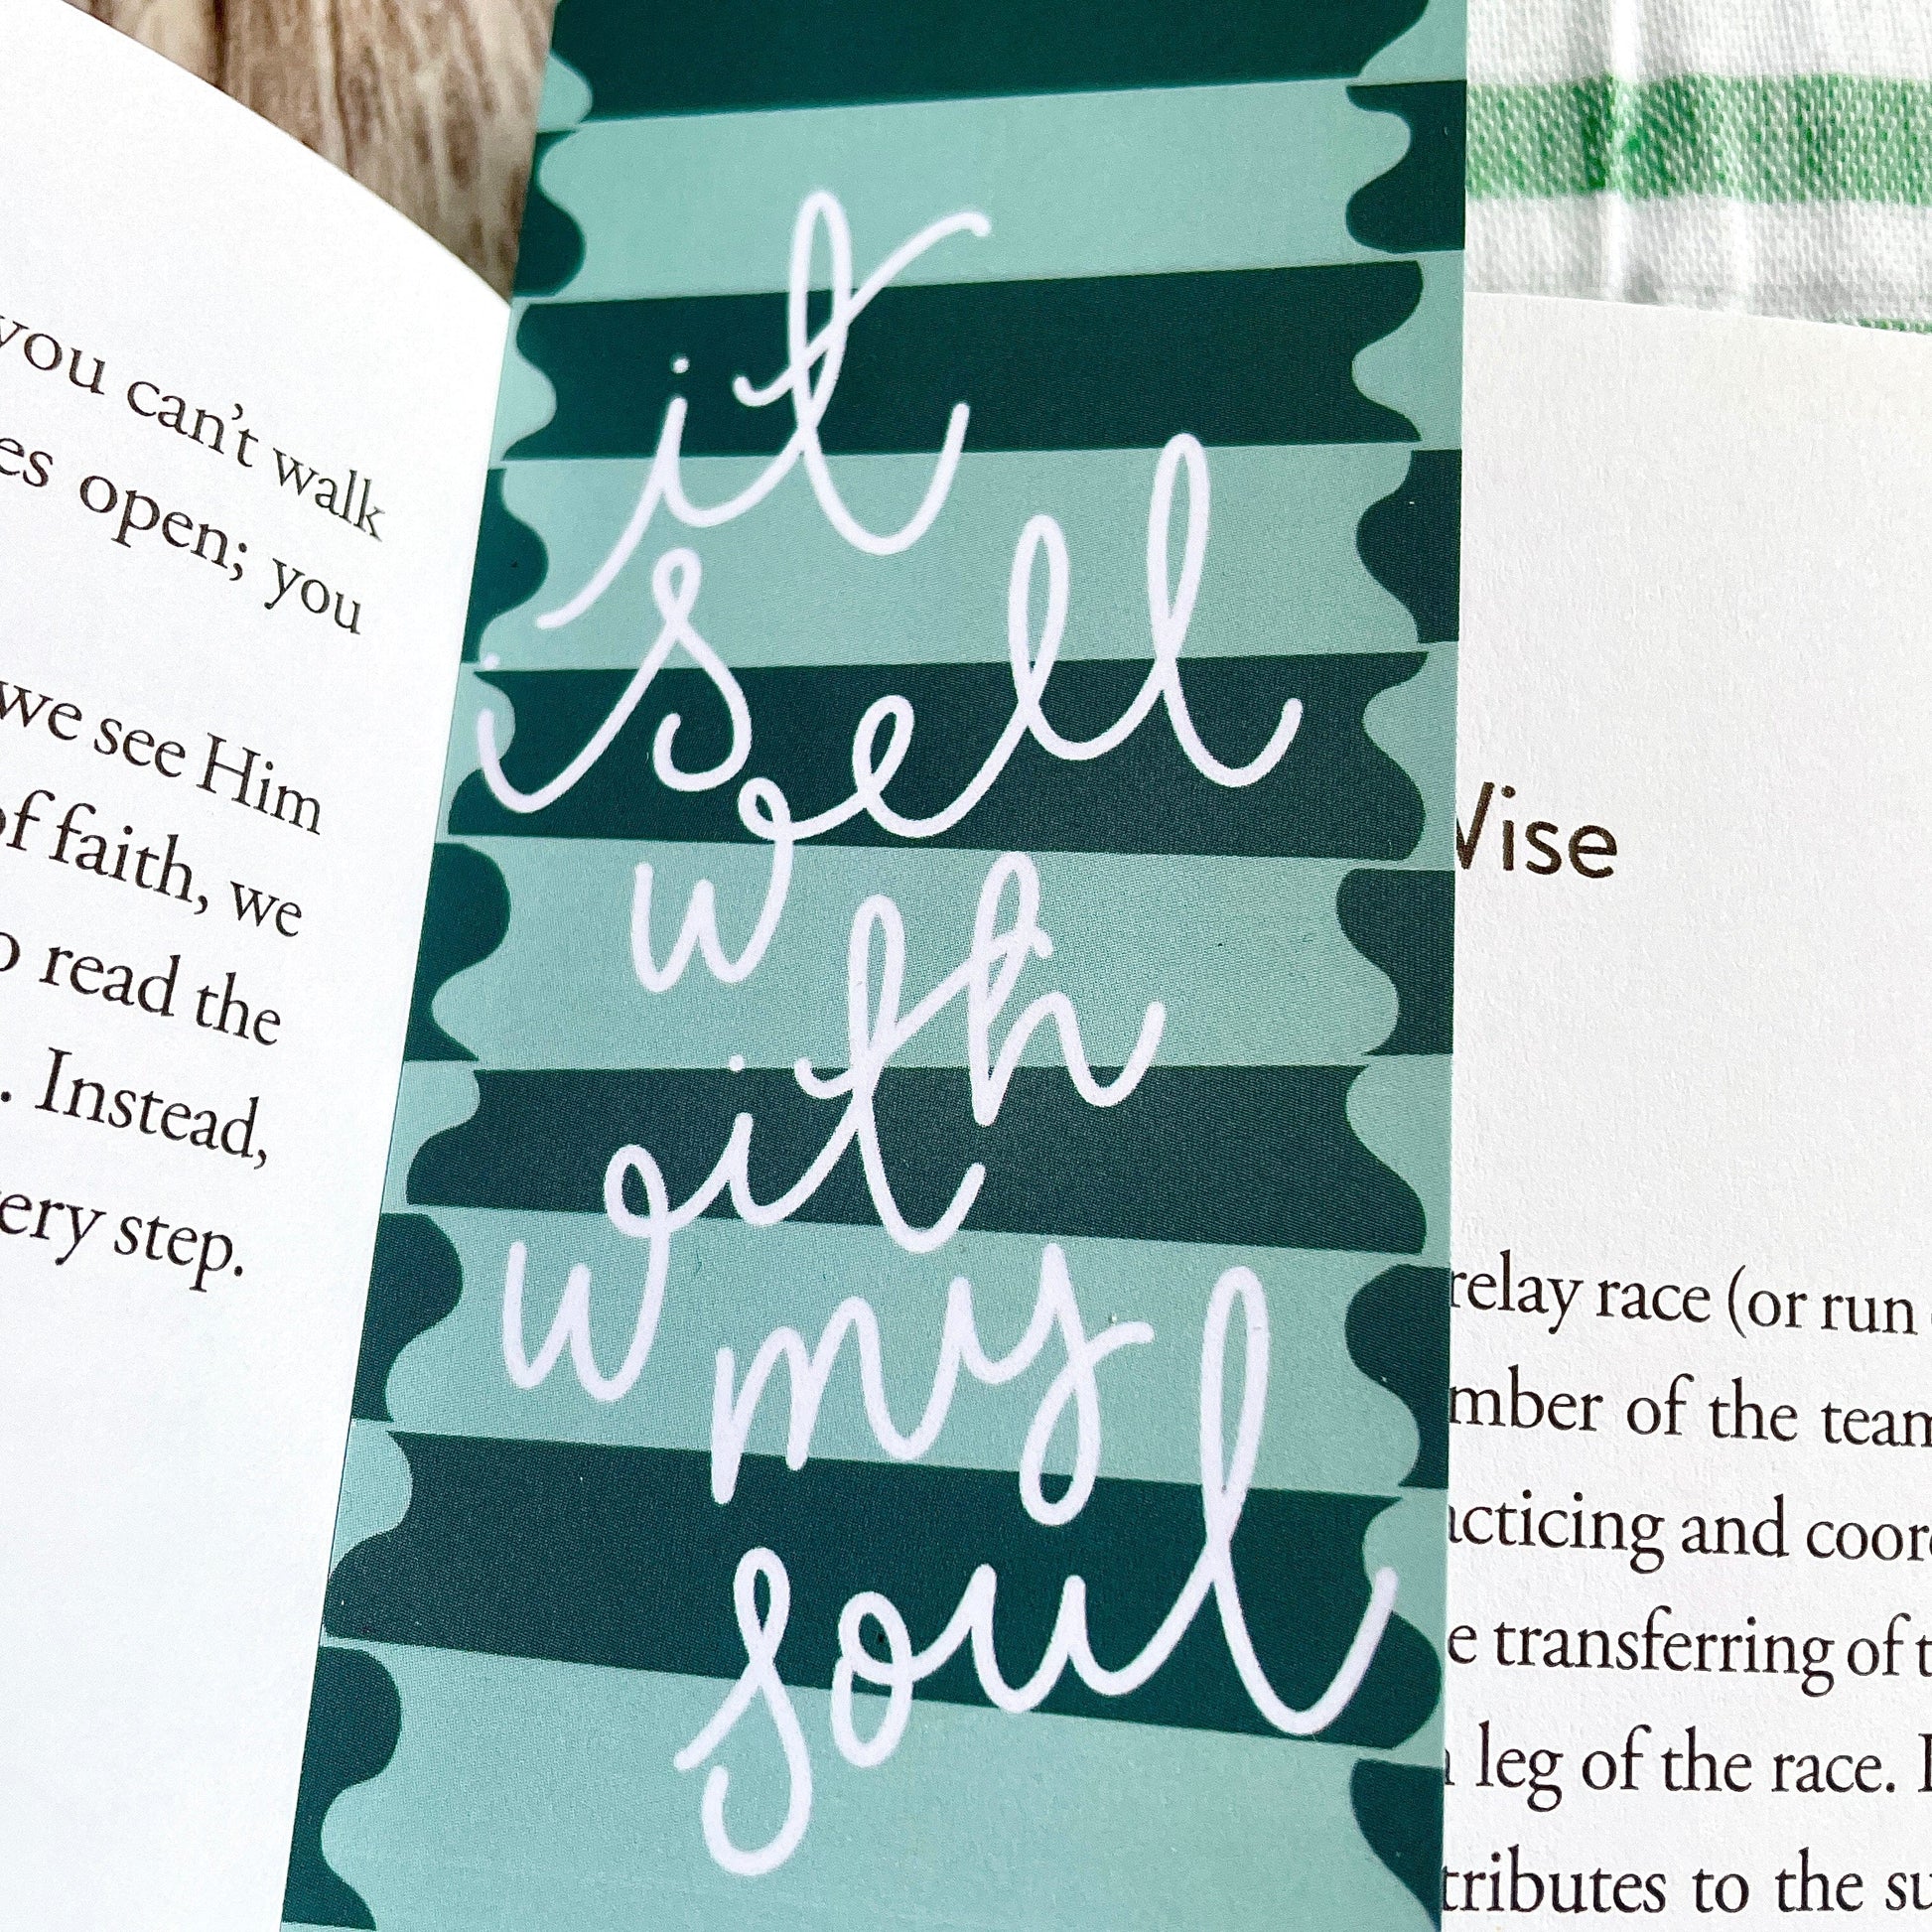 you can't walk
es open; you
we see Him
of faith, we
o read the
. Instead,
ery step.
it
is
well
with
my
soul
Wise
relay race (or run
mber of the team
acticing and coor
e transferring of t
leg of the race. I
tributes to the su